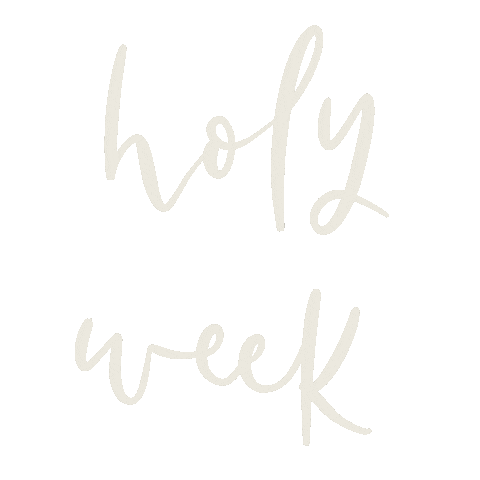 holy
week